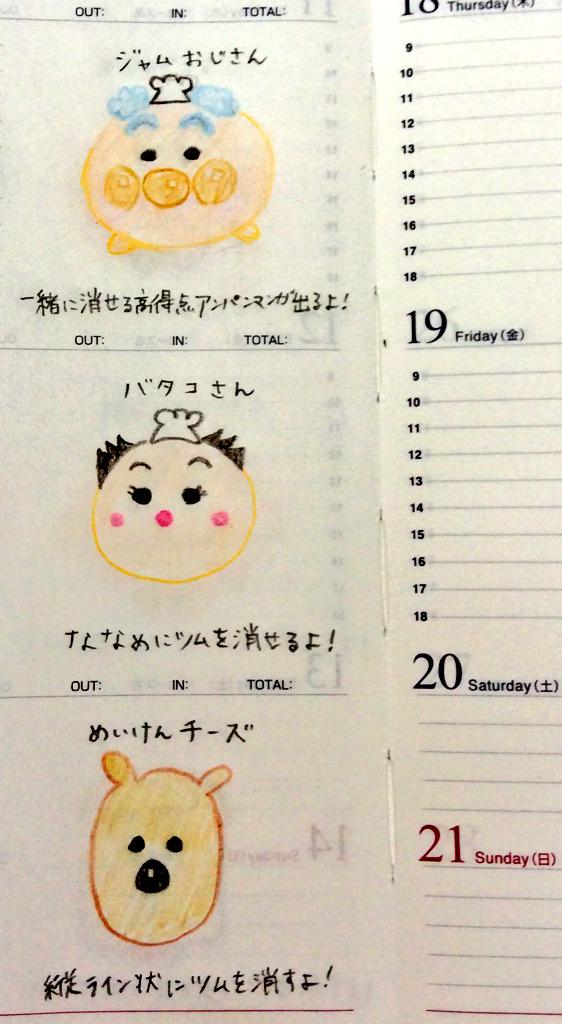 OUT: IN: TOTAL:
ジャムおじさん
一緒に消せる高得点アンパンマンが出るよ!
OUT: IN: TOTAL:
バタコさん
ななめにツムを消せるよ!
OUT: IN: TOTAL:
めいけんチーズ
縦ライン状にツムを消すよ!
18 Thursday(木)
9
10
11
12
13
14
15
16
17
18
19 Friday(金)
9
10
11
12
13
14
15
16
17
18
20 Saturday(土)
21 Sunday(日)